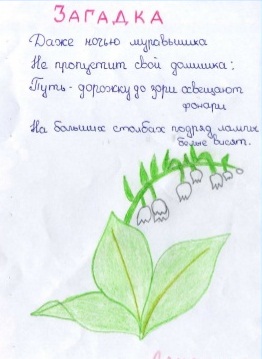 ЗАГАДКА
Даже ночью муравьишка
Не пропустит свой домишка:
Путь - дорожку до зари освещают
фонари
На больших столбах подряд лампы
белые висят.